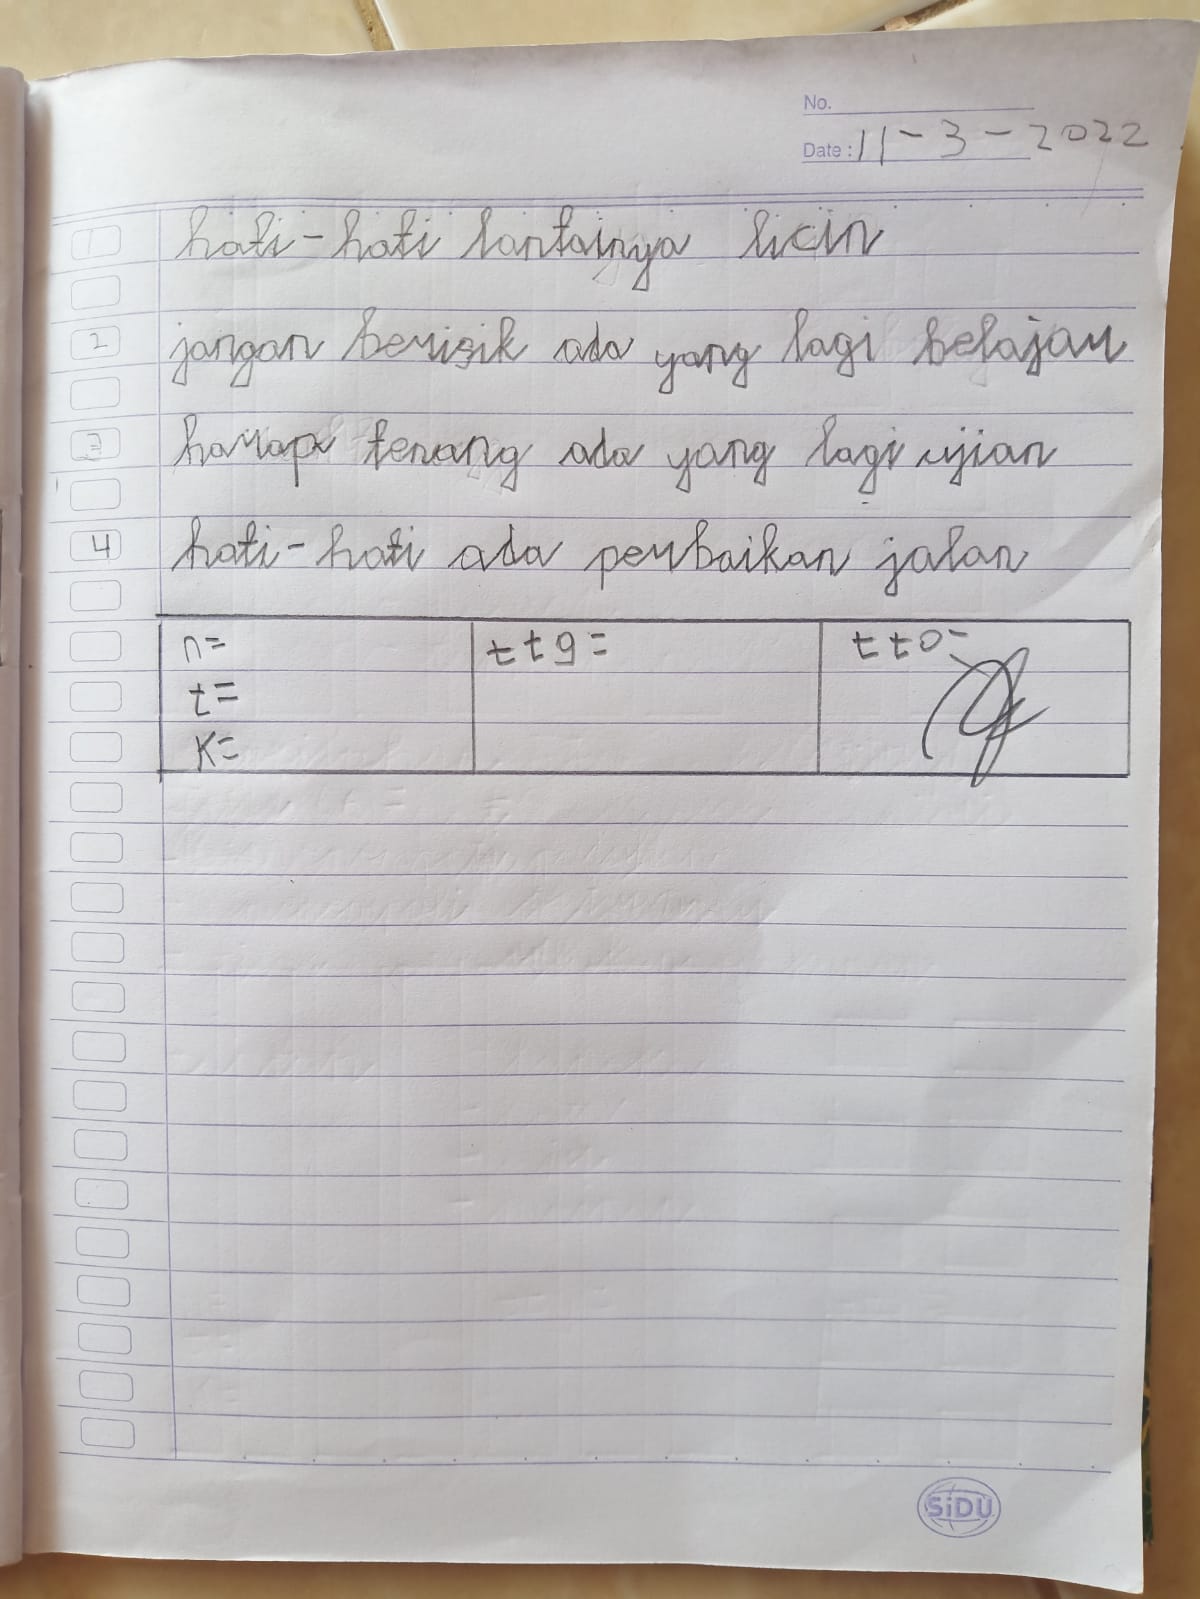 No.
Date : 11-3-2022
1 hati-hati lantainya licin
2 jangan berisik ada yang lagi belajar
3 harap tenang ada yang lagi ujian
4 hati-hati ada perbaikan jalan
n= ttg= tto=
t=
K=
SiDU